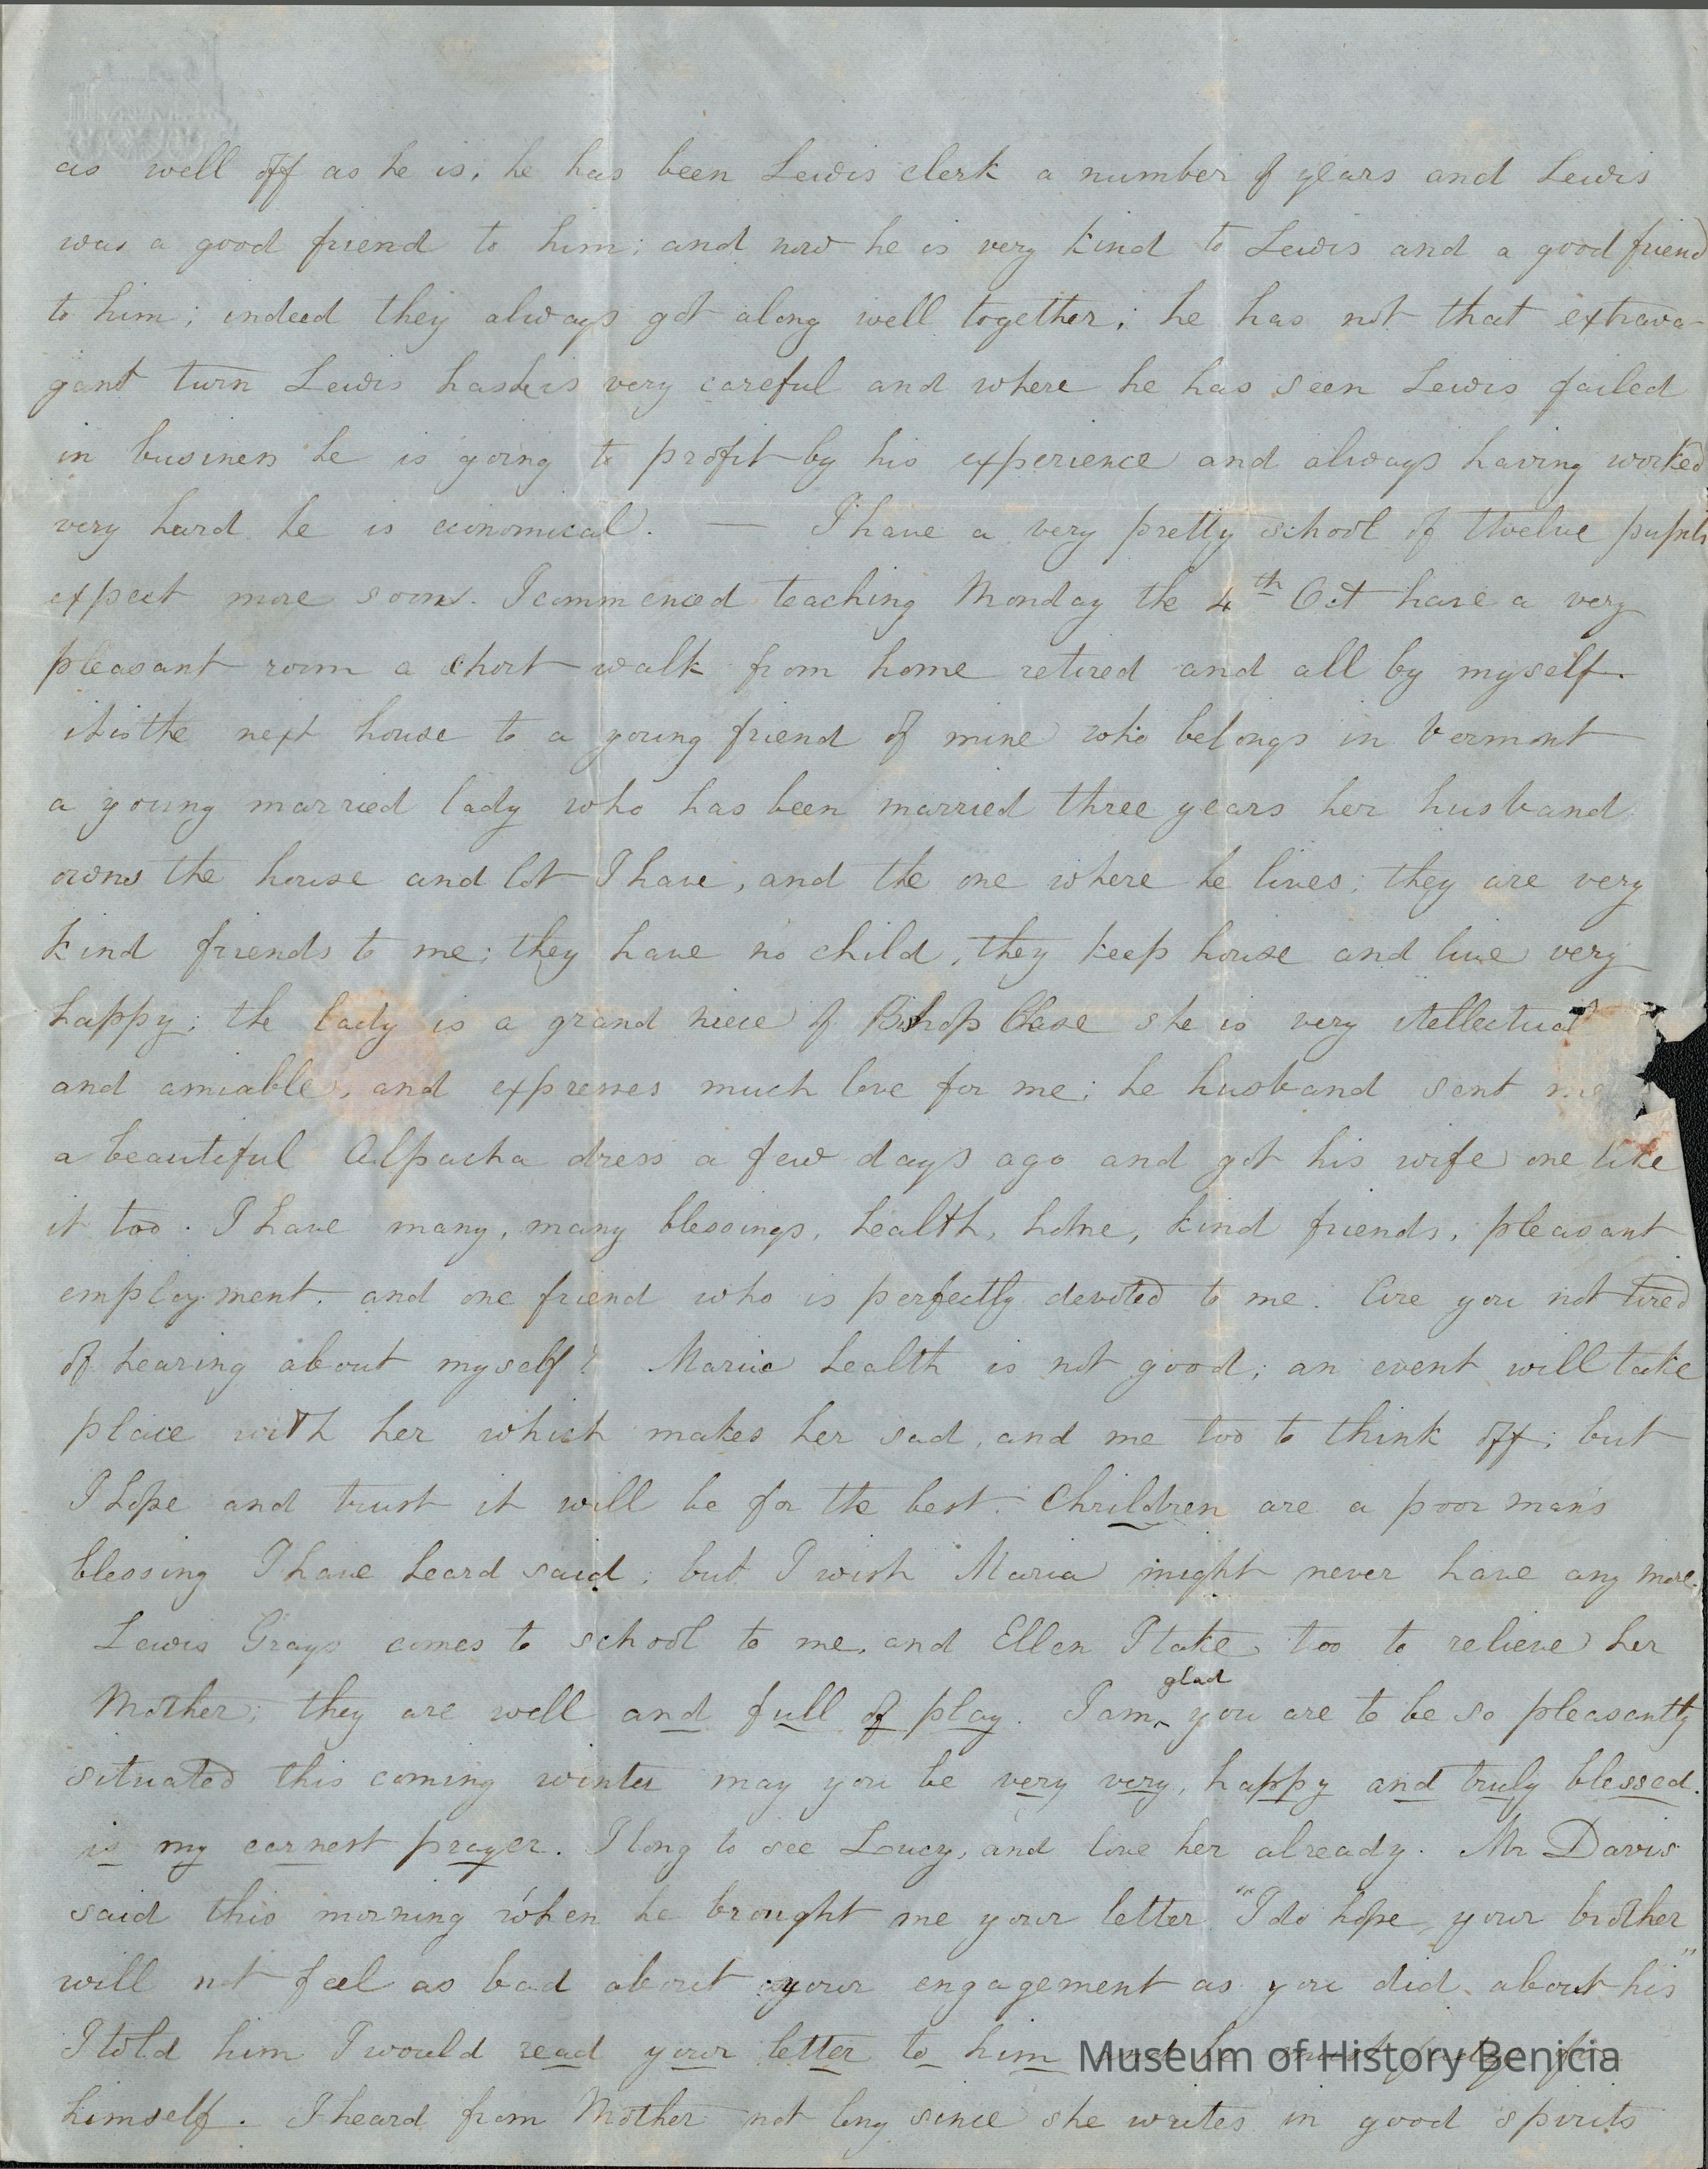 as well off as he is, he has been Lewis clerk a number of years and Lewis
was a good friend to him; and now he is very kind to Lewis and a good friend
to him; indeed they always got along well together; he has not that extrava-
gant turn Lewis has he is very careful and where he has seen Lewis failed
in business he is going to profit by his experience and always having worked
very hard he is economical. — I have a very pretty school of twelve pupils
expect more soon. I commenced teaching Monday the 4th Oct have a very
pleasant room a short walk from home retired and all by myself.
it is the next house to a young friend of mine who belongs in Vermont
a young married lady who has been married three years her husband
owns the house and lot I have, and the one where he lives; they are very
kind friends to me; they have no child, they keep house and live very
happy; the lady is a grand niece of Bishop Chase she is very itellectual
and amiable, and expresses much love for me; he husband sent me
a beautiful Alpacha dress a few days ago and got his wife one like
it too. I have many, many blessings, health, home, kind friends, pleasant
employment. and one friend who is perfectly devoted to me. Are you not tired
of hearing about myself? Maria health is not good; an event will take
place with her which makes her sad, and me too to think off; but
I hope and trust it will be for the best. Chrildren are a poor man's
blessing I have heard said; but I wish Maria might never have any more.
Lewis Grays comes to school to me, and Ellen I take too to relieve her
Mother; they are well and full of play. I am glad you are to be so pleasantly
situated this coming winter may you be very very, happy and truly blessed.
is my earnest prayer. I long to see Lucy, and love her already. Mr Davis
said this morning when he brought me your letter "I do hope your brother
will not feel as bad about your engagement as you did about his"
I told him I would read your letter to him
himself. I heard from Mother not long since she writes in good spirits
Museum of History Benicia